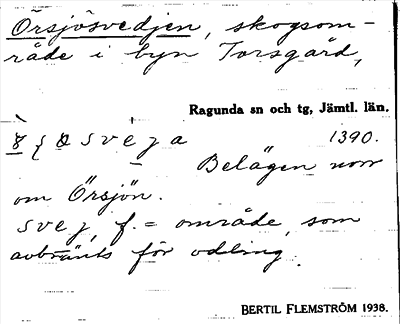 Örsjösvedjen, skogsom-
råde i byn Torsgård,
Ragunda sn och tg, Jämtl. län.
sveja 1390.
Belägen norr
om Örsjön.
svej, f. = område, som
avbränts för odling.
BERTIL FLEMSTRÖM 1938.